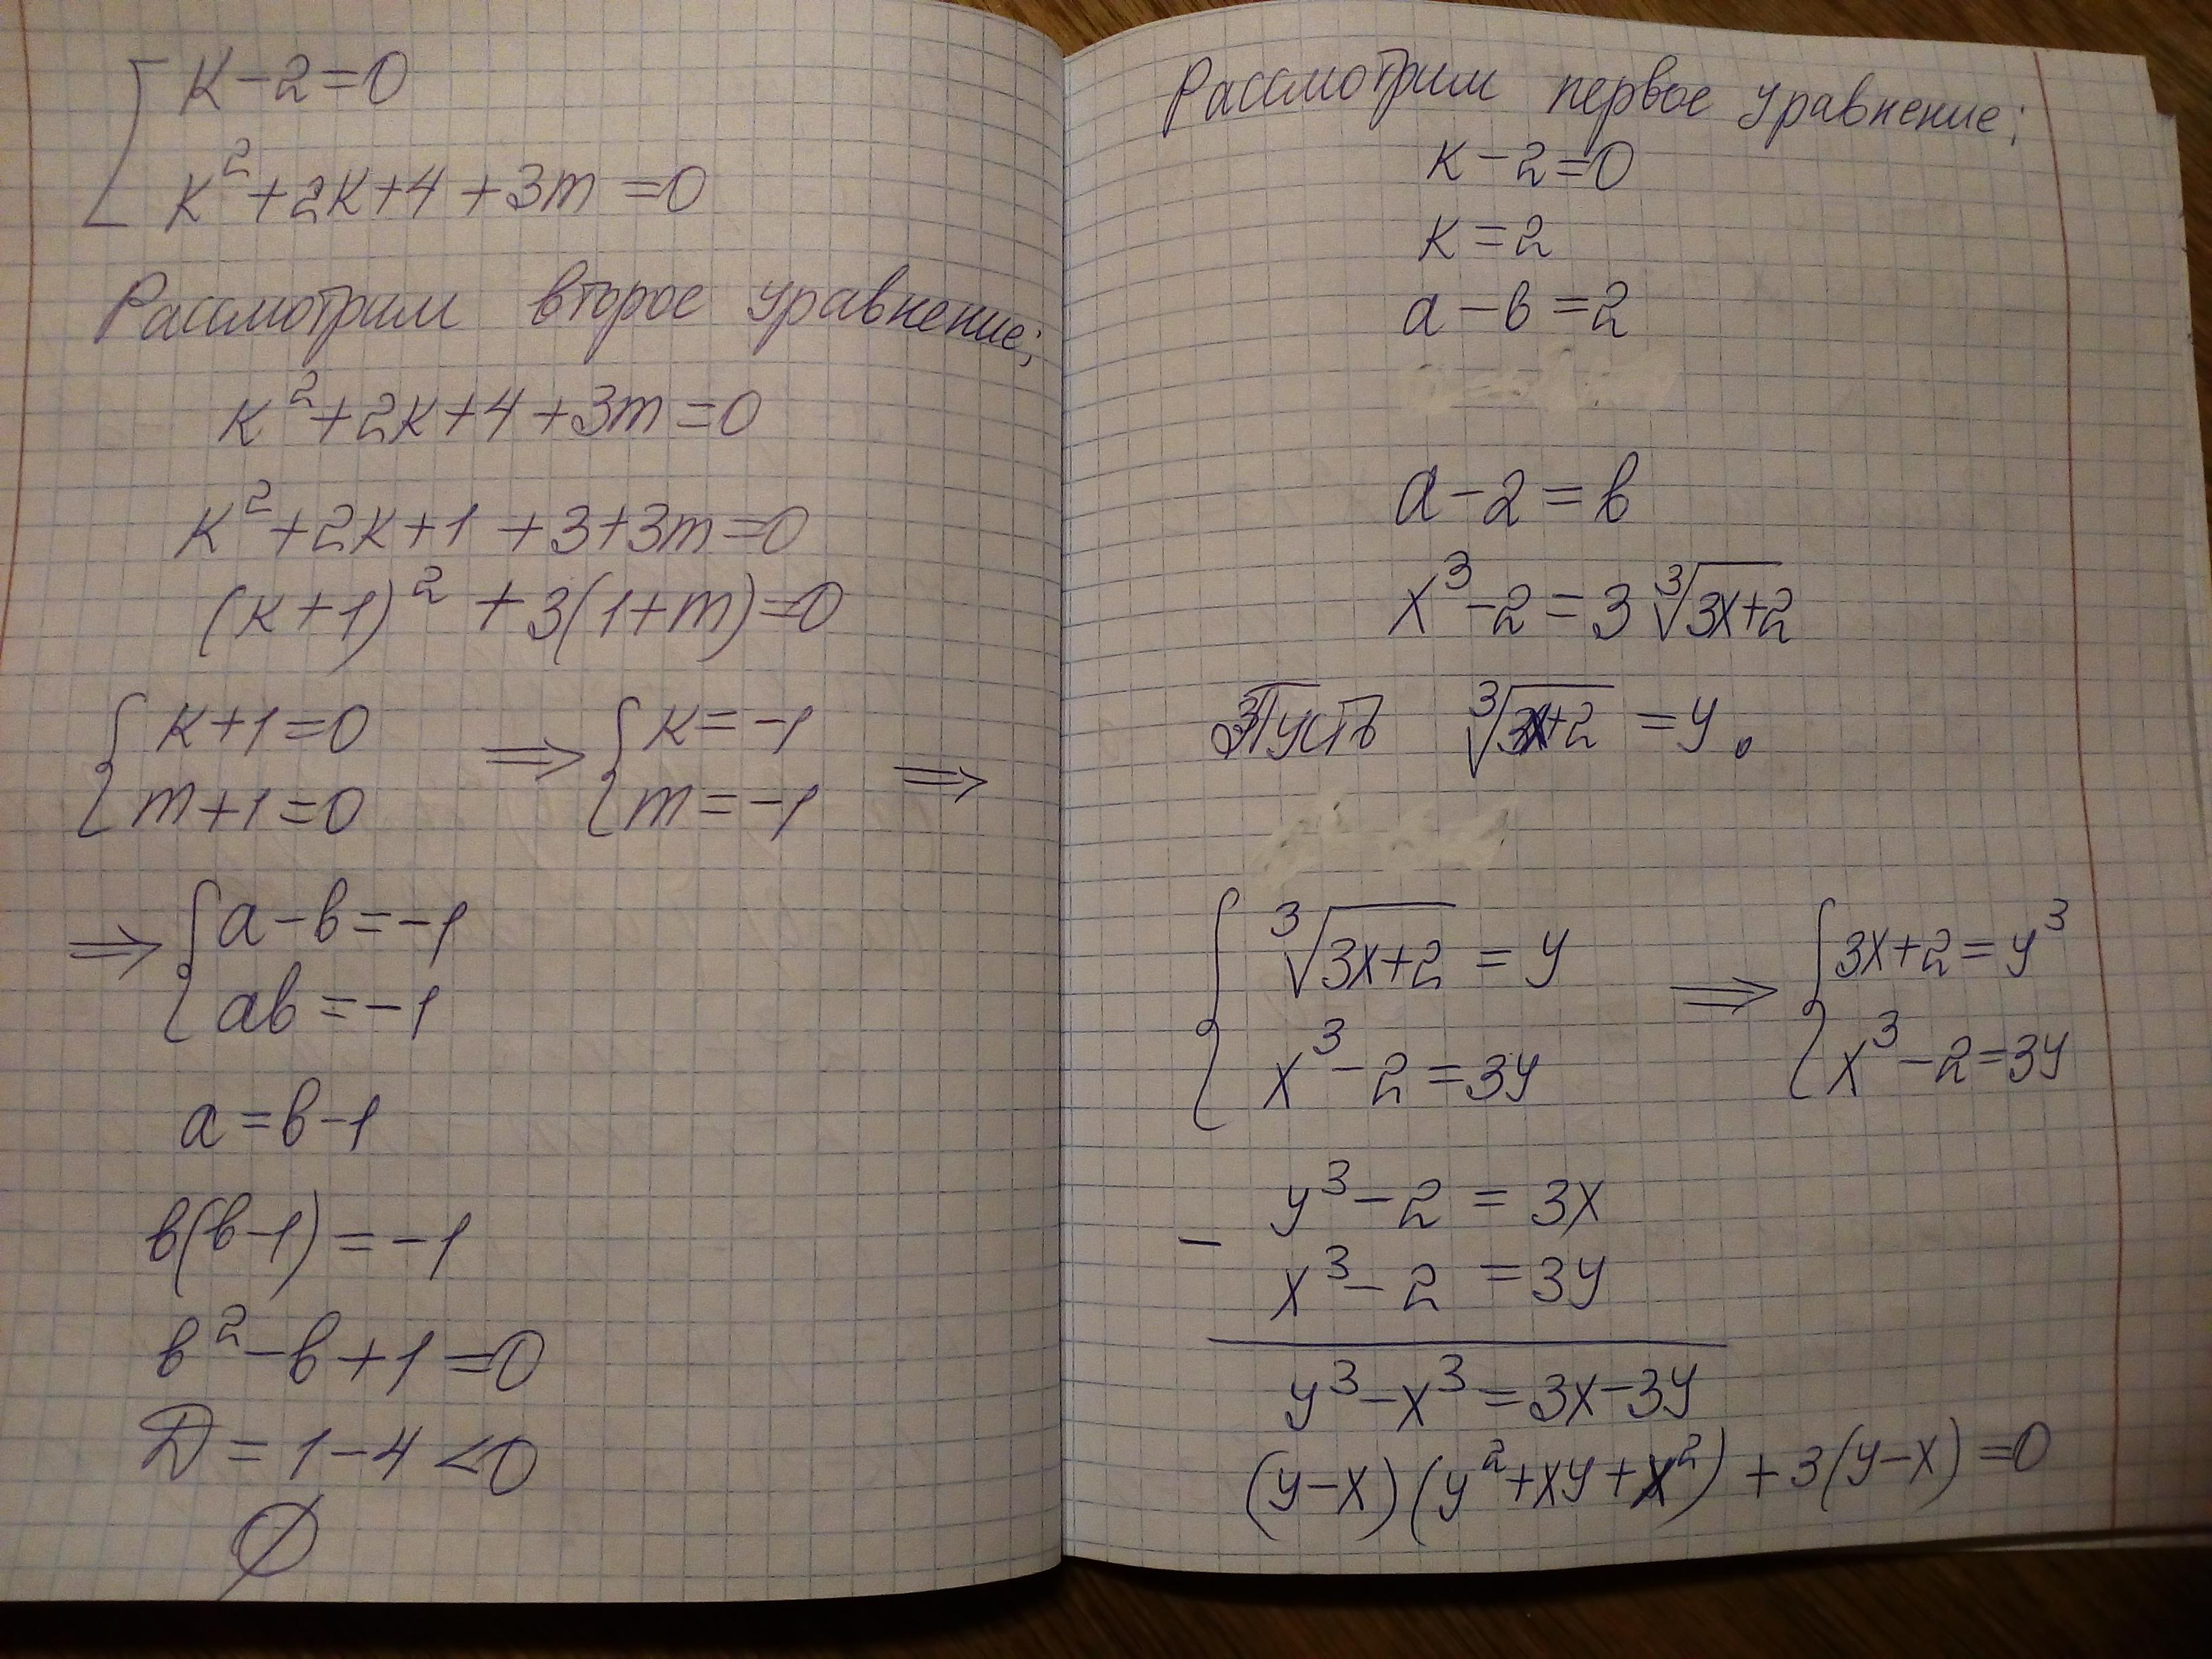 к-2=0
к²+2к+4+3m=0
Рассмотрим второе уравнение;
к²+2к+4+3m=0
к²+2к+1+3+3m=0
(к+1)²+3(1+m)=0
к+1=0 ⇒ к=-1 ⇒
m+1=0 m=-1
⇒ a-в=-1
aв=-1
a=в-1
в(в-1)=-1
в²-в+1=0
D=1-4<0
∅
Рассмотрим первое уравнение;
к-2=0
к=2
a-в=2
a-2=в
x³-2=3∛3x+2
Пусть ∛3x+2=y.
∛3x+2=y ⇒ 3x+2=y³
x³-2=3y x³-2=3y
y³-2=3x
-
x³-2=3y
y³-x³=3x-3y
(y-x)(y²+xy+x²)+3(y-x)=0